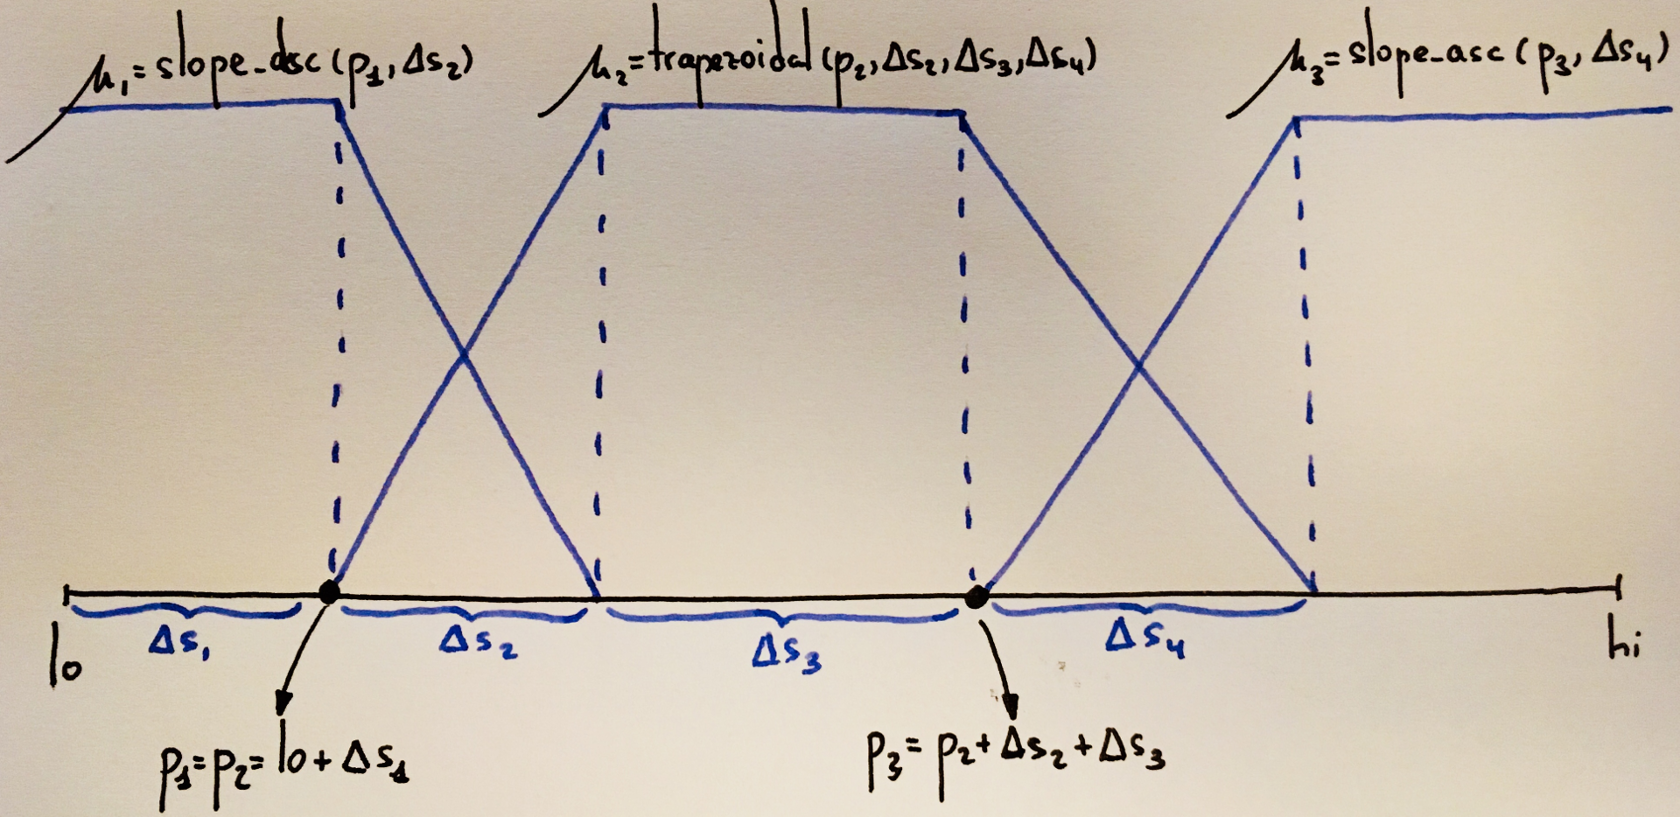 μ₁=slope-dsc(p₁,Δs₂)
μ₂=trapezoidal(p₂,Δs₂,Δs₃,Δs₄)
μ₃=slope-asc(p₃,Δs₄)
Δs₁
Δs₂
Δs₃
Δs₄
lo
hi
p₁=p₂=lo+Δs₁
p₃=p₂+Δs₂+Δs₃